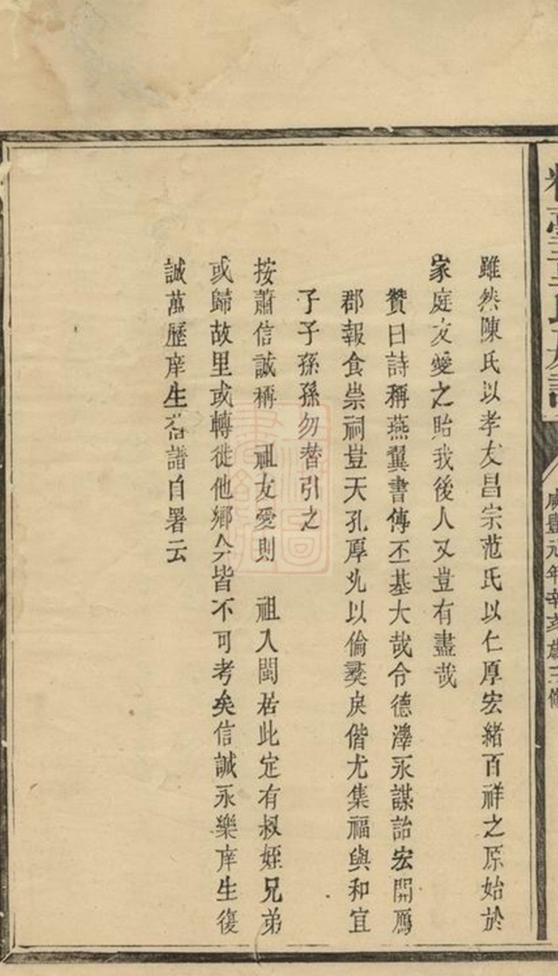 咸豐元年辛亥歲三修
雖然陳氏以孝友昌宗范氏以仁厚宏緒百祥之原始於
家庭友愛之貽我後人又豈有盡哉
贊曰詩稱燕翼書傳丕基大哉令德澤永謀詒宏開鴈
郡報食崇祠豈天孔厚允以倫彜戾偕尤集福與和宜
子子孫孫勿替引之
按蕭信誠稱 祖友愛則 祖入閩居此定有叔姪兄弟
或歸故里或轉徙他鄉今皆不可考矣信誠永樂庠生復
誠萬歷庠生舊譜自署云